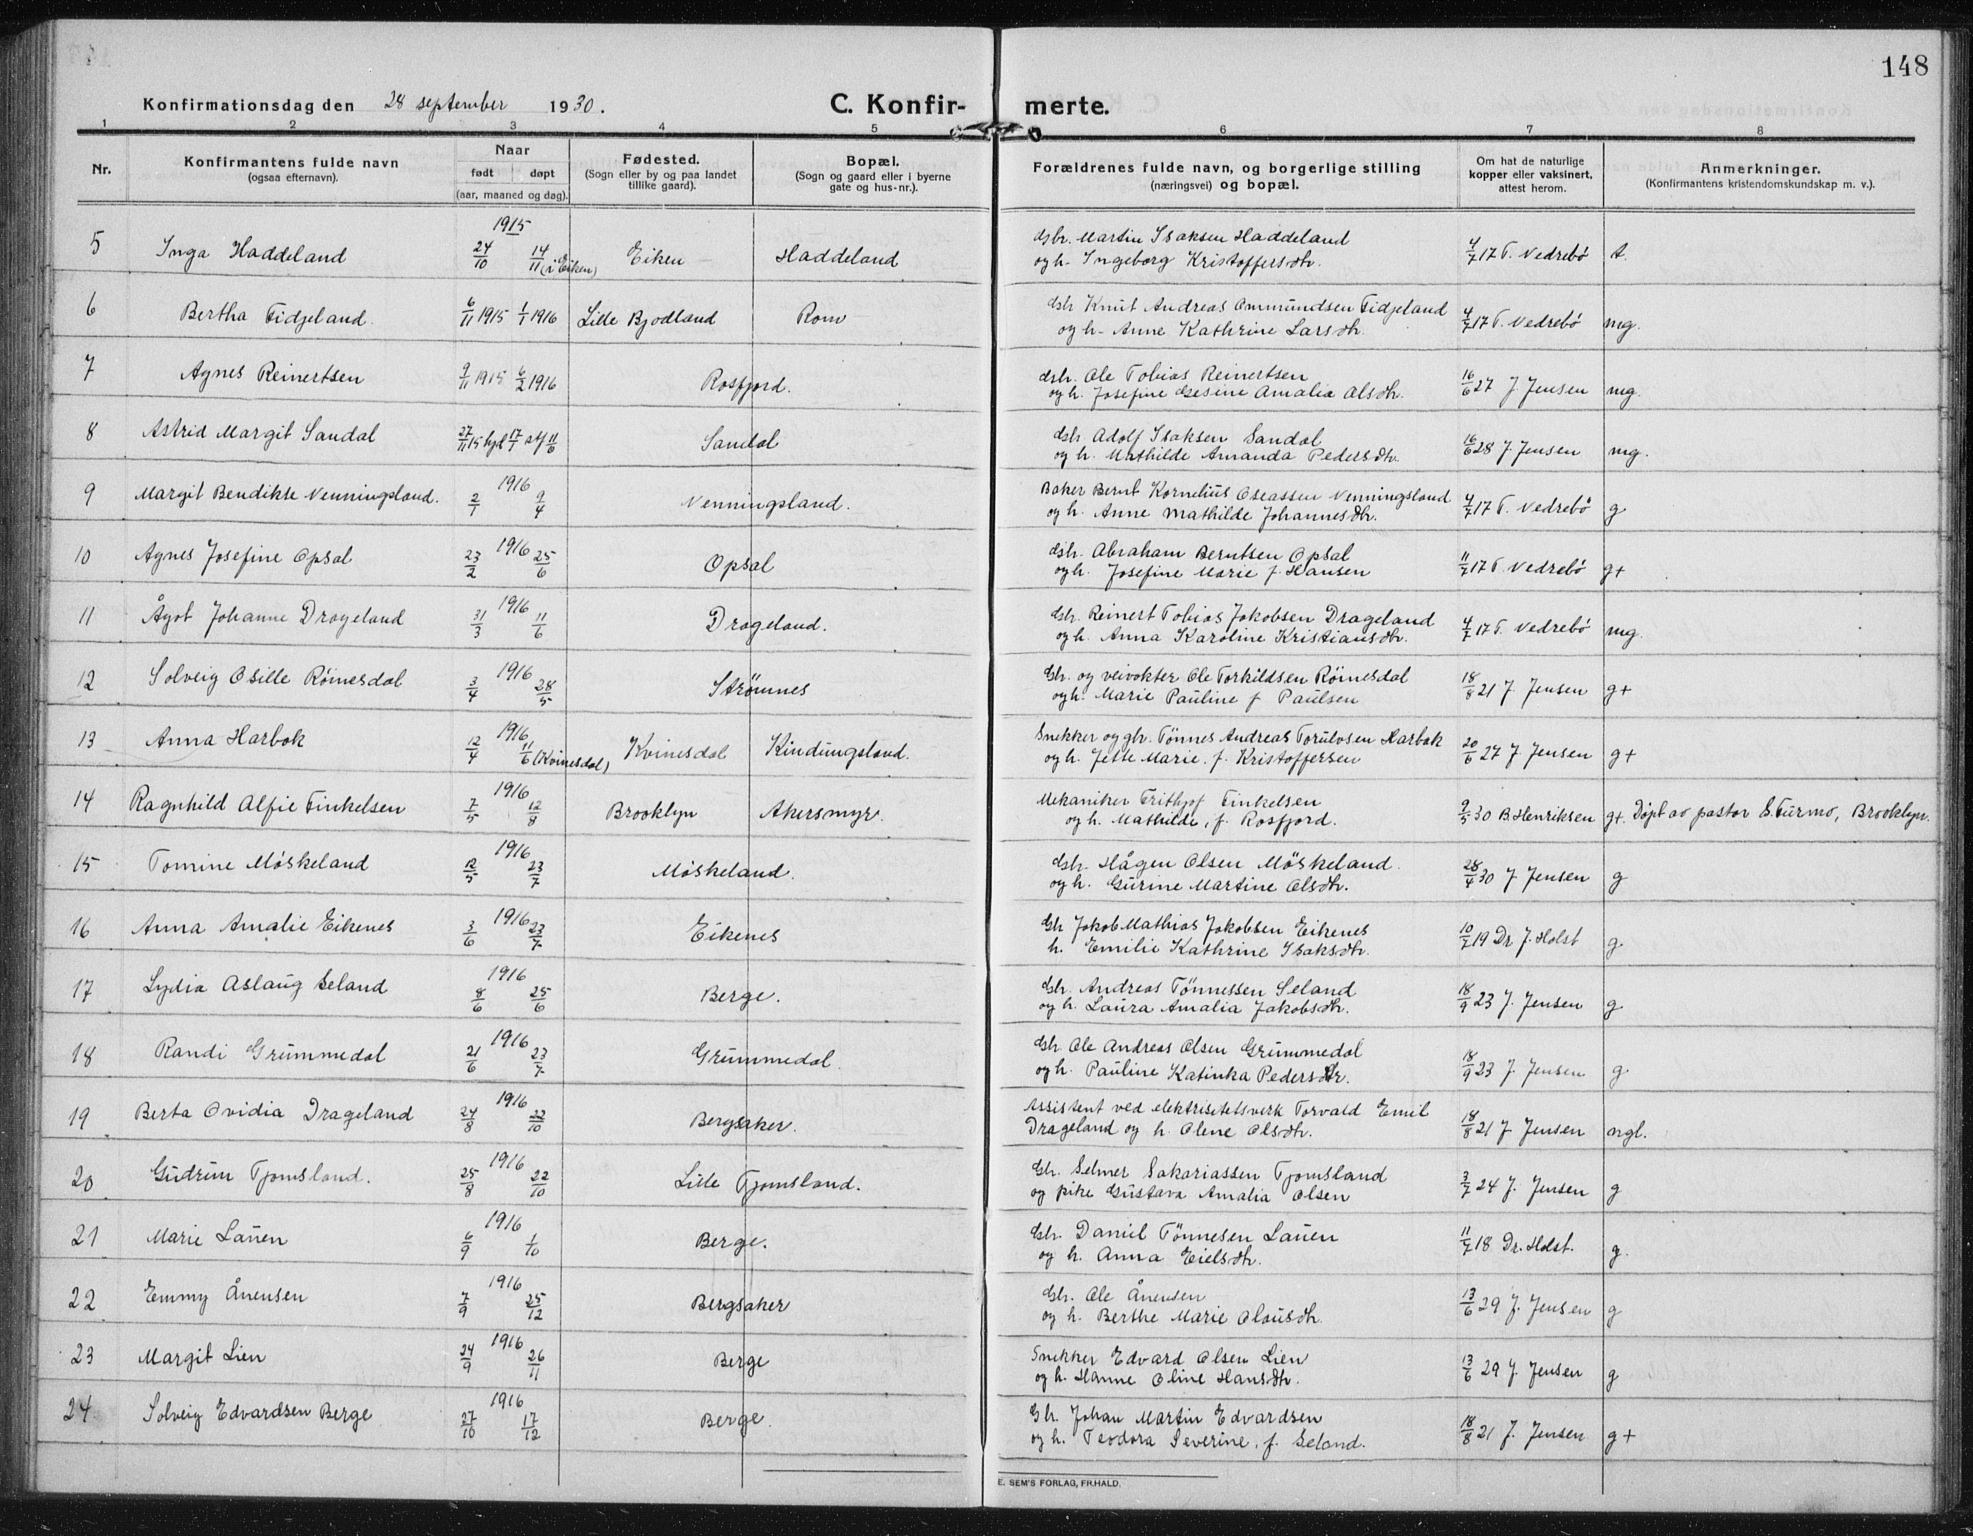 148
Konfirmationsdag den 28 september 1930.
C. Konfirmerte.
1 2 3 4 5 6 7 8
Nr.
Konfirmantens fulde navn
(ogsaa efternavn).
Naar
født døpt
(aar, maaned og dag).
Fødested.
(Sogn eller by og paa landet
tillike gaard).
Bopæl.
(Sogn og gaard eller i byerne
gate og hus-nr.).
Forældrenes fulde navn, og borgerlige stilling
(næringsvei) og bopæl.
Om hat de naturlige
kopper eller vaksinert,
attest herom.
Anmerkninger.
(Konfirmantens kristendomskundskap m. v.).
5 Inga Haddeland 1915 24/10 14/11 (i Eiken) Eiken Haddeland
Martin Isaksen Haddeland
og h. Ingeborg Kristoffersdtr. 4/7 17 T. Vedrebø t.
6 Bertha Fidjeland. 6/11 1915 1/1 1916 Lille Bjodland Rom
Knut Andreas Ommundsen Fidjeland
og h. Anne Kathrine Larsdtr. 4/7 17 T. Vedrebø mg.
7 Agnes Reinertsen 9/11 1915 6/2 1916 Rosfjord.
Ole Tobias Reinertsen
og h. Josefine Gesine Amalia Olsdtr. 16/6 27 J. Jensen mg.
8 Astrid Margit Sandal 27/11 15 hjd 17/1 stf 11/6 Sandal
Adolf Isaksen Sandal
og h. Mathilde Amanda Pedersdtr. 16/6 28 J. Jensen mg.
9 Margit Bendikte Venningsland. 1916 2/1 9/4 Venningsland.
Baker Bernt Kornelius Oseassen Venningsland
og h. Anne Mathilde Johannesdtr. 4/7 17 T. Vedrebø g
10 Agnes Josefine Opsal 1916 23/2 25/6 Opsal
Abraham Berntsen Opsal
og h. Josefine Marie f. Hansen 11/7 17 T. Vedrebø g+
11 Ågot Johanne Drageland 1916 31/3 11/6 Drageland.
Gbr. Reinert Tobias Jakobsen Drageland
og h. Anna Karoline Kristiansdtr. 4/7 17 T. Vedrebø mg.
12 Solveig Osille Röinesdal 1916 3/4 28/5 Strömnes
Gbr. og veivokter Ole Torkildsen Röinesdal
og h. Marie Pauline f Paulsen 18/8 21 J. Jensen g+
13 Anna Harbak 1916 12/4 11/6 (Kvinesdal) Kvinesdal Kindungsland.
Snekker og gbr. Tönnes Andreas Torulvsen Harbak
og h. Jette Marie, f. Kristoffersen 20/6 27 J Jensen g+
14 Ragnhild Alfie Finkelsen 1916 7/5 12/8 Brooklyn Akersmyr.
Mekaniker Frithjof Finkelsen
og h. Mathilde, f. Rosfjord. 9/5 30 B. Henriksen g+. Døpt av pastor S. Turmo, Brooklyn.
15 Tomine Möskeland 1916 12/5 23/7 Möskeland.
Gbr. Hågen Olsen Möskeland.
og h. Gurine Martine Olsdtr. 28/4 30 J Jensen g
16 Anna Amalie Eikenes 1916 3/6 23/7 Eikenes
Gbr Jakob Mathias Jakobsen Eikenes
h. Emilie Kathrine Isaksdtr. 10/7 19 Dr J. Holst g.
17 Lydia Aslaug Seland 1916 8/6 25/6 Berge.
Gbr. Andreas Tönnessen Seland
og h. Laura Amalia Jakobsdtr. 18/9 23 J. Jensen g
18 Randi Grummedal 1916 21/6 23/7 Grummedal.
Gbr Ole Andreas Olsen Grummedal
og h. Pauline Katinka Pedersdtr. 18/9 23 J. Jensen g
19 Berta Ovidia Drageland 1916 24/8 22/10 Bergsaker.
Assistent ved elektrisitetsverk Torvald Emil
Drageland og h. Olene Olsdtr. 18/8 21 J Jensen ngl.
20 Gudrun Tjomsland. 1916 25/8 22/10 Lille Tjomsland.
Gbr. Selmer Sakariassen Tjomsland
og pike Gustava Amalia Olsen 3/7 24 J. Jensen g
21 Marie Lauen 1916 6/9 1/10 Berge.
Gbr. Daniel Tönnesen Lauen
og h. Anna Eielsdtr. 11/7 18 Dr. Holst. g.
22 Emmy Ånensen 1916 7/9 25/12 Bergsaker
Gbr. Ole Ånensen
og h. Berthe Marie Olausdtr. 13/6 29 J. Jensen g
23 Margit Lien 1916 24/9 26/11 Berge
Snekker Edvard Olsen Lien
og h. Hanne Oline Hansdtr. 13/6 29 J. Jensen g
24 Solveig Edvardsen Berge 1916 27/10 17/12 Berge.
Gbr. Johan Martin Edvardsen
og h. Teodora Severine, f. Seland. 18/8 21 J. Jensen g+
E. SEM'S FORLAG, FR.HALD.